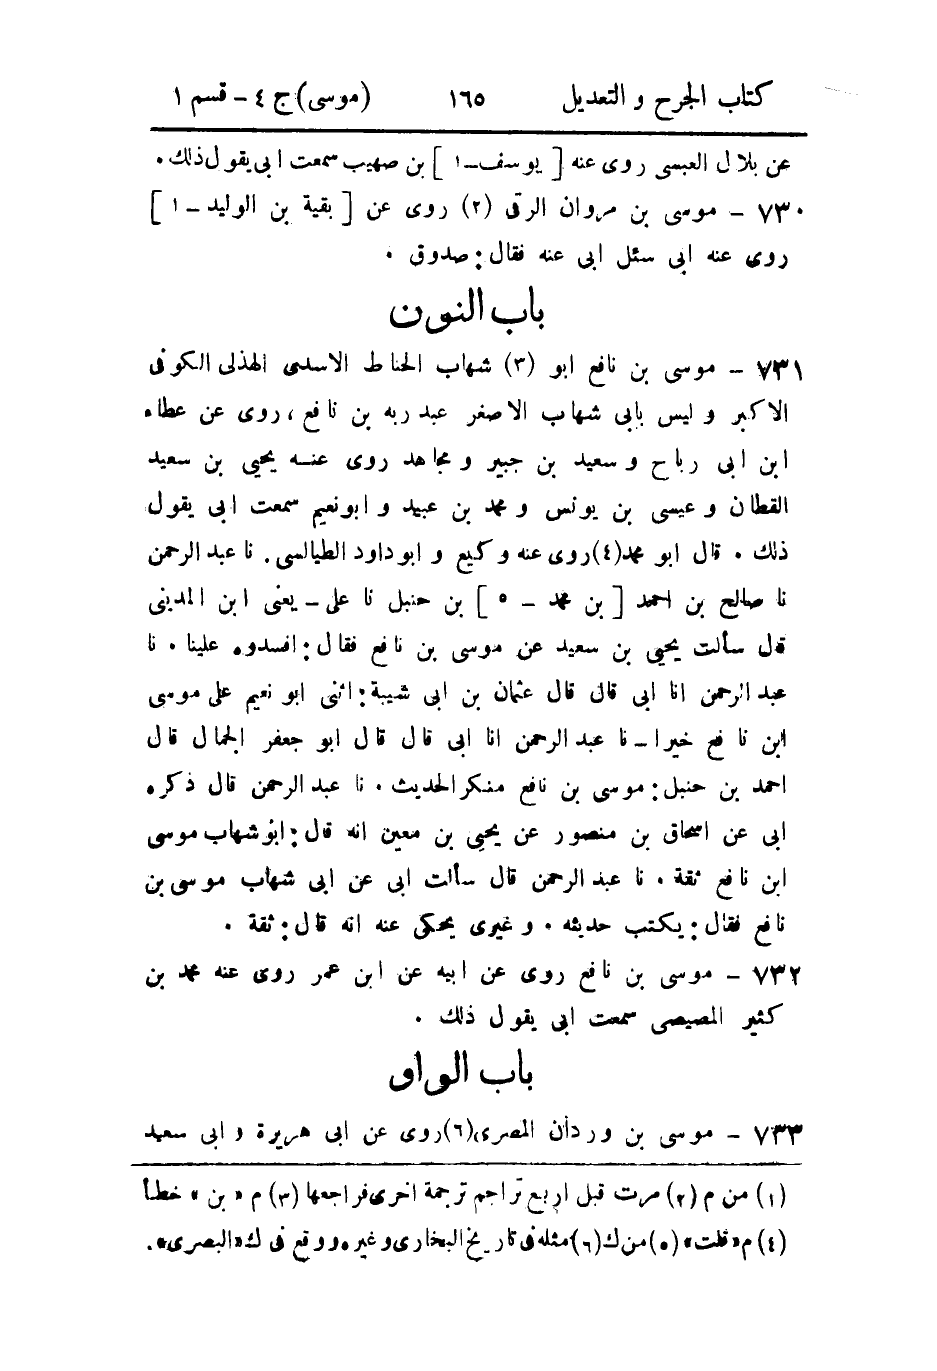 كتاب الجرح و التعديل ١٦٥ (موسى) ج ٤ - قسم ١
عن بلال العبسى روى عنه [ يوسف - ١ ] بن صهيب سمعت ابى يقول ذلك .
٧٣٠ - موسى بن مروان الرقى (٢) روى عن [ بقية بن الوليد - ١ ]
روى عنه ابى سئل ابى عنه فقال : صدوق .
باب النون
٧٣١ - موسى بن نافع ابو (٣) شهاب الحناط الاسدى الهذلى الكوفى
الاكبر و ليس بابى شهاب الاصغر عبد ربه بن نافع ، روى عن عطاء
ابن ابى رباح و سعيد بن جبير و مجاهد روى عنه يحيى بن سعيد
القطان و عيسى بن يونس و محمد بن عبيد و ابو نعيم سمعت ابى يقول
ذلك . قال ابو محمد (٤) روى عنه و كيع و ابو داود الطيالسى . نا عبد الرحمن
نا صالح بن احمد [ بن محمد - ٥ ] بن حنبل نا على - يعنى ابن المدينى
قال سألت يحيى بن سعيد عن موسى بن نافع فقال : افسدوه علينا . نا
عبد الرحمن انا ابى قال قال عثمان بن ابى شيبة : اثنى ابو نعيم على موسى
ابن نافع خيرا - نا عبد الرحمن انا ابى قال قال ابو جعفر الجمال قال
احمد بن حنبل : موسى بن نافع منكر الحديث . نا عبد الرحمن قال ذكره
ابى عن اسحاق بن منصور عن يحيى بن معين انه قال : ابو شهاب موسى
ابن نافع ثقة . نا عبد الرحمن قال سألت ابى عن ابى شهاب موسى بن
نافع فقال : يكتب حديثه . و غيرى يحكى عنه انه قال : ثقة .
٧٣٢ - موسى بن نافع روى عن ابيه عن ابن عمر روى عنه محمد بن
كثير المصيصى سمعت ابى يقول ذلك .
باب الواو
٧٣٣ - موسى بن وردان المصرى (٦) روى عن ابى هريرة و ابى سعيد
(١) من م (٢) مرت قبل اربع تراجم ترجمة اخرى فراجعها (٣) م « بن » خطأ
(٤) م « قلت » (٥) من ك (٦) مثله فى تاريخ البخارى و غيره و وقع فى ك « البصرى » .